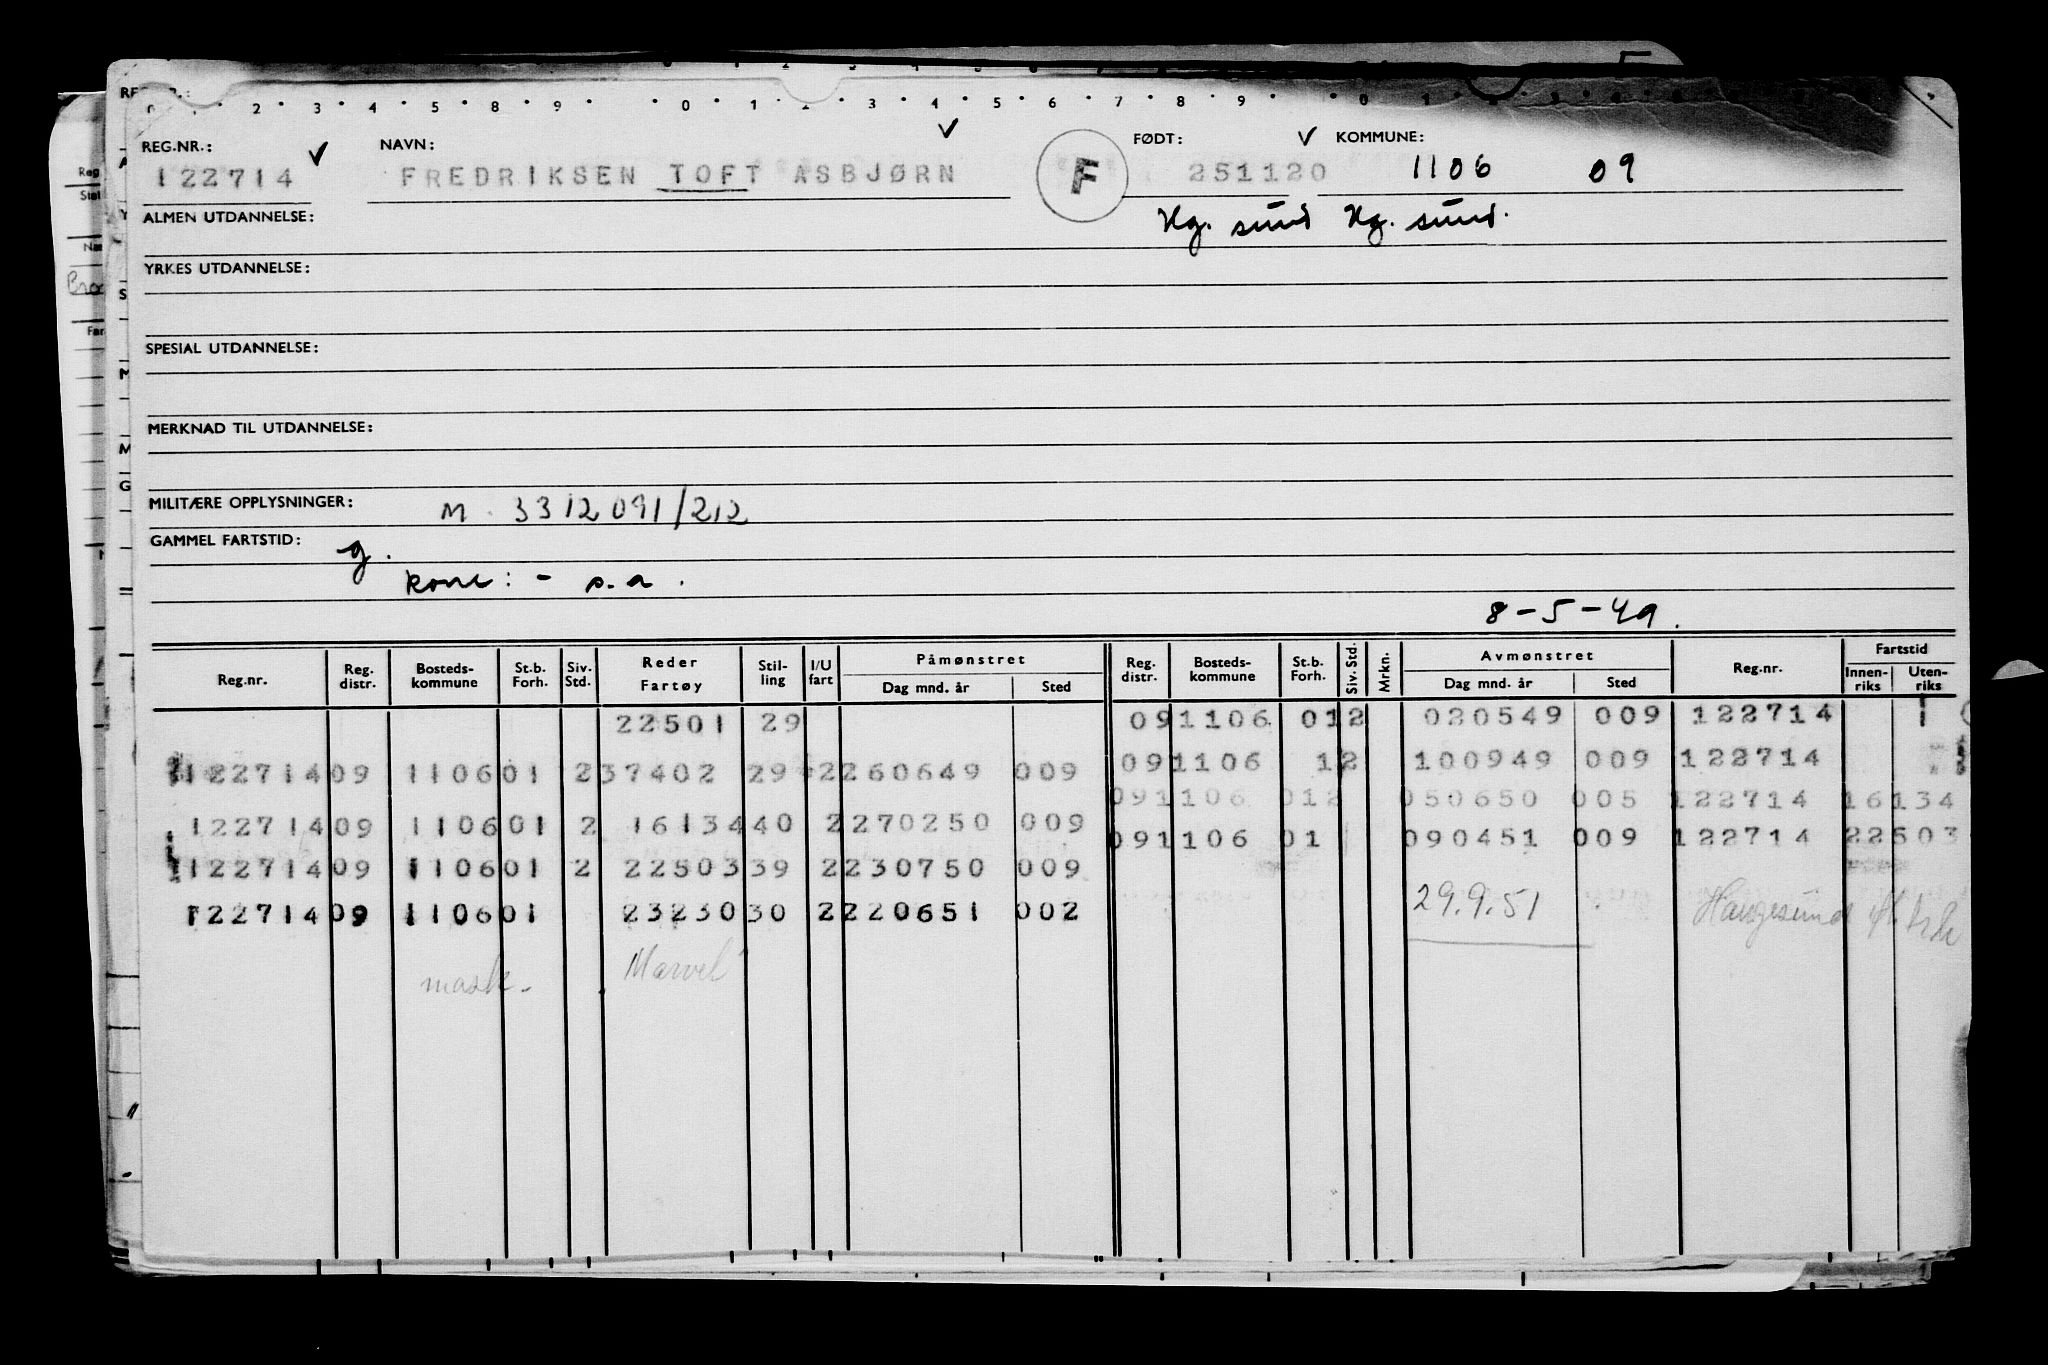 0 2 3 4 5 8 9 0 1 2 3 4 5 6 7 8 9 0
REG.NR.: NAVN: FØDT: KOMMUNE:
122714 FREDRIKSEN TOFT ASBJØRN F 251120 1106 09
ALMEN UTDANNELSE: Hg. sund Hg. sund.
YRKES UTDANNELSE:
SPESIAL UTDANNELSE:
MERKNAD TIL UTDANNELSE:
MILITÆRE OPPLYSNINGER: M. 3312091/212
GAMMEL FARTSTID: g.
kone: - s.a.
8-5-49.
Reg.nr. Reg. distr. Bosteds-kommune St.b. Forh. Siv. Std. Reder Fartøy Stil-ling I/U fart Påmønstret Dag mnd. år Sted Reg. distr. Bosteds-kommune St.b. Forh. Siv. Std. Mrkn. Avmønstret Dag mnd. år Sted Reg.nr. Fartstid Innen-riks Uten-riks
22501 29 091106 012 020549 009 122714 1
12271409 110601 237402 29 2260649 009 091106 12 100949 009 122714
091106 012 050650 005 122714 16134
12271409 110601 2 1613440 2270250 009
091106 01 090451 009 122714 22503
12271409 110601 2 2250339 2230750 009
12271409 110601 2323030 2220651 002 29.9.51 Haugesund
mask. Marvel